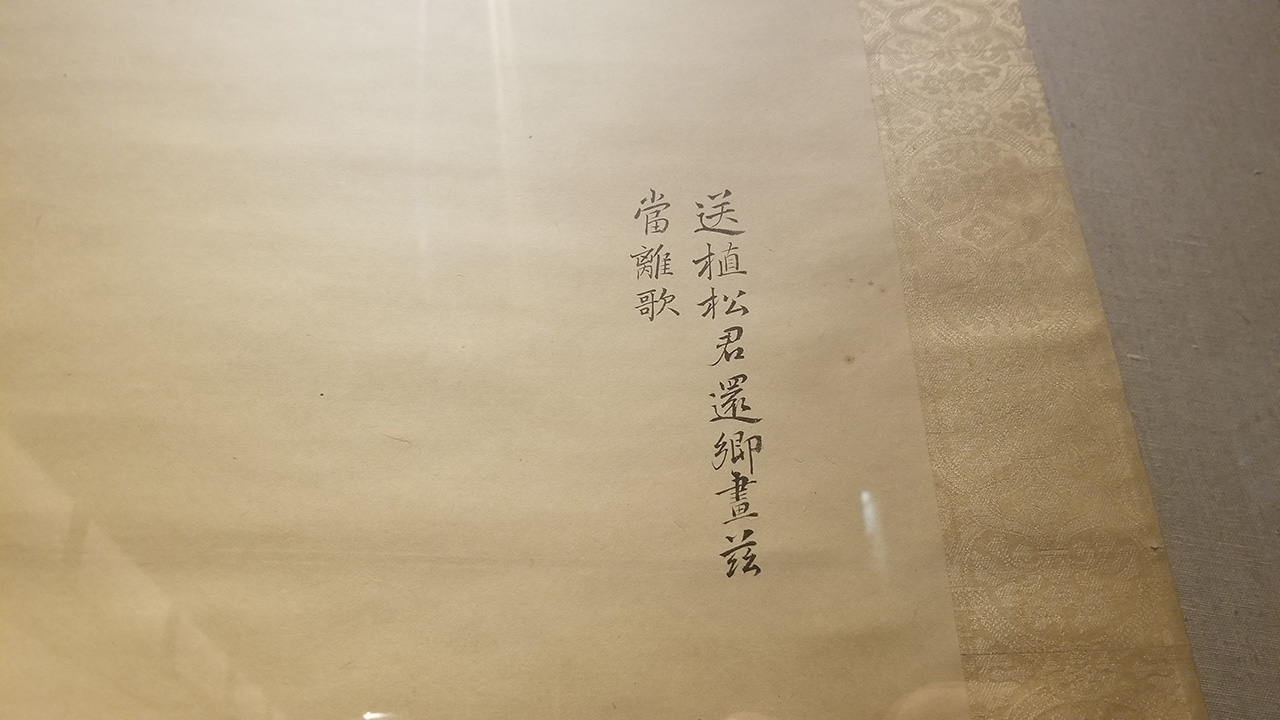 送植松君還鄉畫茲
當離歌